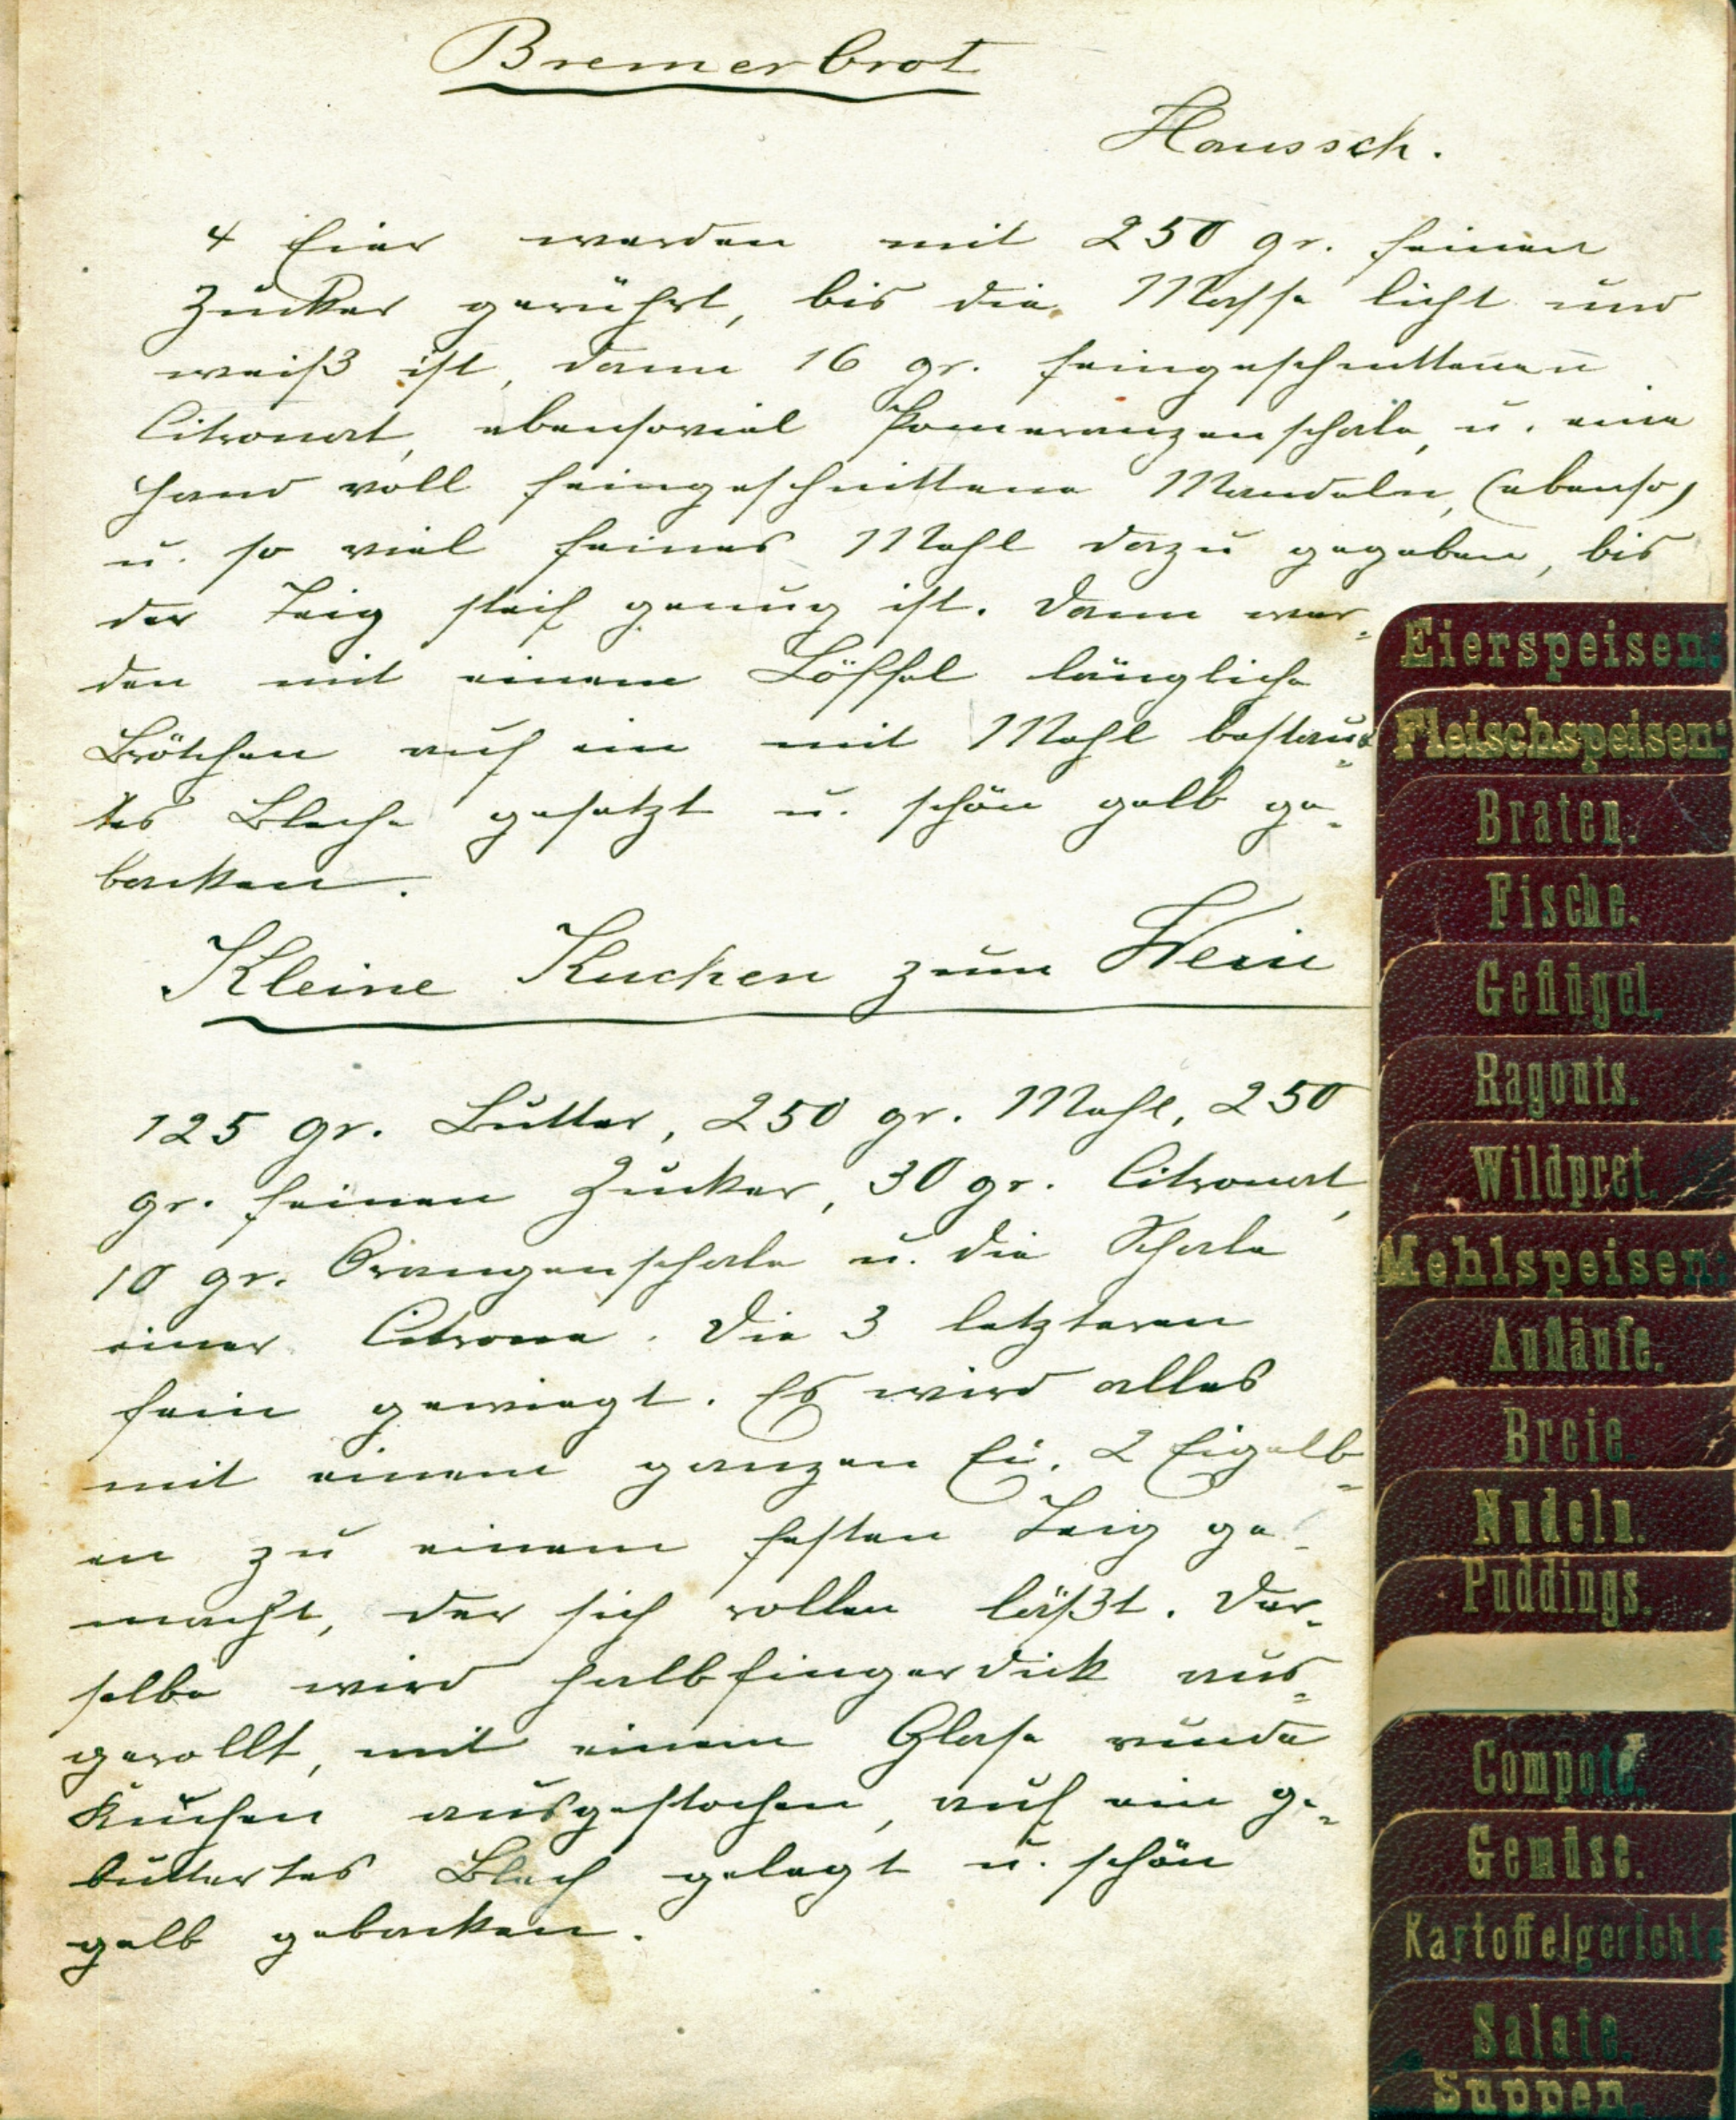 Bremerbrot
Haussch.
4 Eier werden mit 250 gr. feinen
Zucker gerührt, bis die Masse licht und
weiß ist, dann 16 gr. feingeschnittenen
Citronat, ebensoviel Pomeranzenschale, u. eine
Hand voll feingeschnittene Mandeln, (ebenso)
u. so viel feines Mehl dazu gegeben, bis
der Teig steif genug ist. Dann wer-
den mit einem Löffel längliche
Brötchen auf ein mit Mehl bestäub-
tes Bleche gesetzt u. schön gelb ge-
backen.
Kleine Kuchen zum Wein
125 gr. Butter, 250 gr. Mehl, 250
gr. feinen Zucker, 30 gr. Citronat,
10 gr. Orangenschale u. die Schale
einer Citrone. Die 3 letzteren
fein gewiegt. Es wird alles
mit einem ganzen Ei, 2 Eigelb-
en zu einem festen Teig ge-
macht, der sich rollen läßt. Der-
selbe wird halbfingerdick aus-
gerollt, mit einem Glase runde
Kuchen ausgestochen, auf ein ge-
buttertes Blech gelegt u. schön
gelb gebacken.
Eierspeisen:
Fleischspeisen:
Braten.
Fische.
Geflügel.
Ragouts.
Wildpret.
Mehlspeisen:
Aufläufe.
Breie.
Nudeln.
Puddings.
Compote.
Gemüse.
Kartoffelgerichte
Salate.
Suppen.